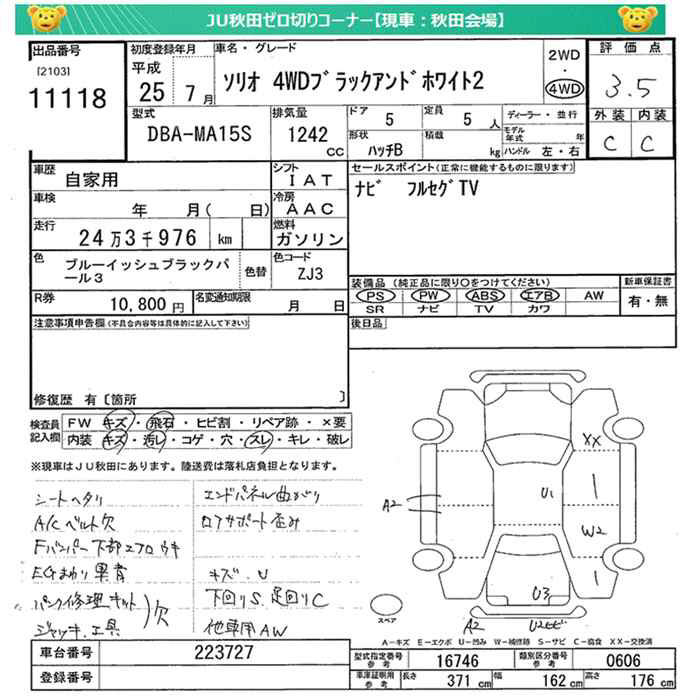 JU秋田ゼロ切りコーナー【現車：秋田会場】
出品番号
[2103]
11118
初度登録年月
平成
25 7月
車名・グレード
ソリオ 4WDブラックアンドホワイト2
2WD
・
4WD
評価点
3.5
外装 内装
C C
型式
DBA-MA15S
排気量
1242
CC
ドア
5
定員
5 人
形状
ハッチB
積載
kg
ディーラー・並行
モデル年式 年
ハンドル 左・右
車歴
自家用
シフト
IAT
車検
年 月( 日)
冷房
AAC
走行
24万3千976 km
燃料
ガソリン
色
ブルーイッシュブラックパール3
色替
色コード
ZJ3
R券
10,800円
名変通知期限
月 日
セールスポイント(正常に機能するものに限ります)
ナビ フルセグTV
装備品 (純正品に限り○をつけてください)
PS PW ABS エアB AW
SR ナビ TV カワ
新車保証書
有・無
後日品
注意事項申告欄(不具合内容等は具体的に記入して下さい)
修復歴 有〔箇所 〕
検査員記入欄
FW キズ・飛石・ヒビ割・リペア跡・×要
内装 キズ・汚レ・コゲ・穴・スレ・キレ・破レ
※現車はJU秋田にあります。陸送費は落札店負担となります。
シートヘタリ
A/Cベルト欠
Fバンパー下部エアロウキ
EGまわり異音
パンク修理キット
ジャッキ、工具
欠
エンドパネル曲がり
ロアサポート歪み
キズ、U
下回りS 足回りC
他車用AW
XX
A2
U1
W2
U3
A2
スペア
A－キズ E－エクボ U－凹み W－補修跡 S－サビ C－腐食 XX－交換済
車台番号
223727
登録番号
型式指定番号
参考
16746
類別区分番号
参考
0606
車庫証明用
参考
長さ 371 cm
幅 162 cm
高さ 176 cm